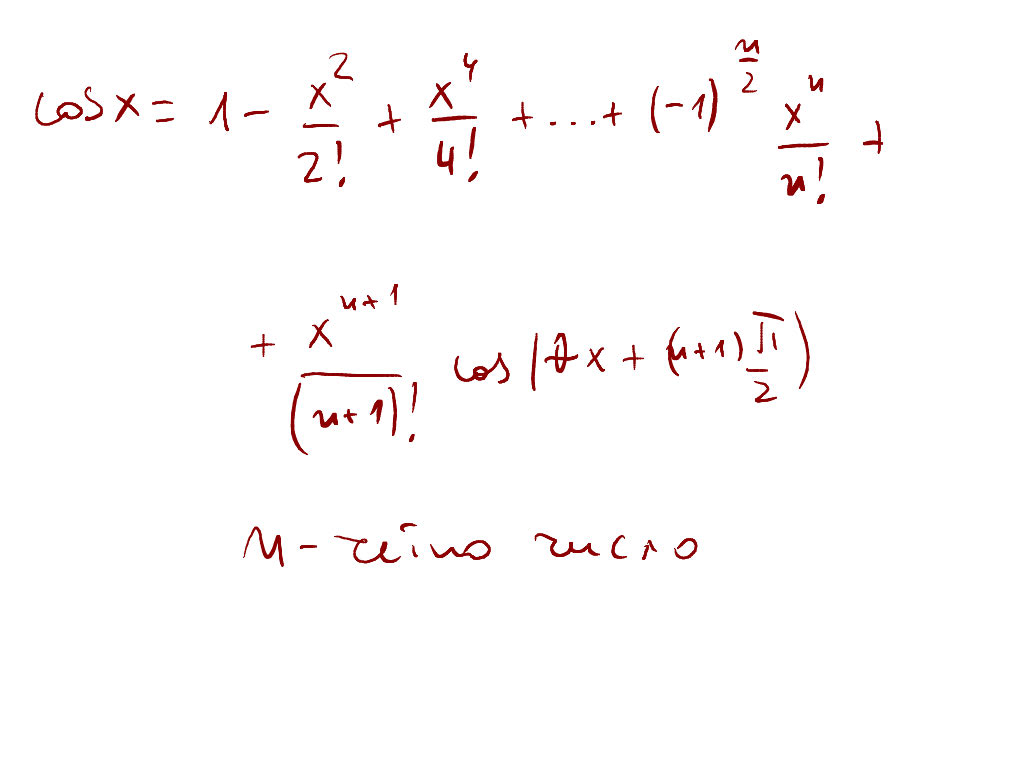 cos x = 1 - x^2/2! + x^4/4! + ... + (-1)^(n/2) x^n/n! +
+ x^(n+1)/(n+1)! cos(θx + (n+1)π/2)
n - чётно число